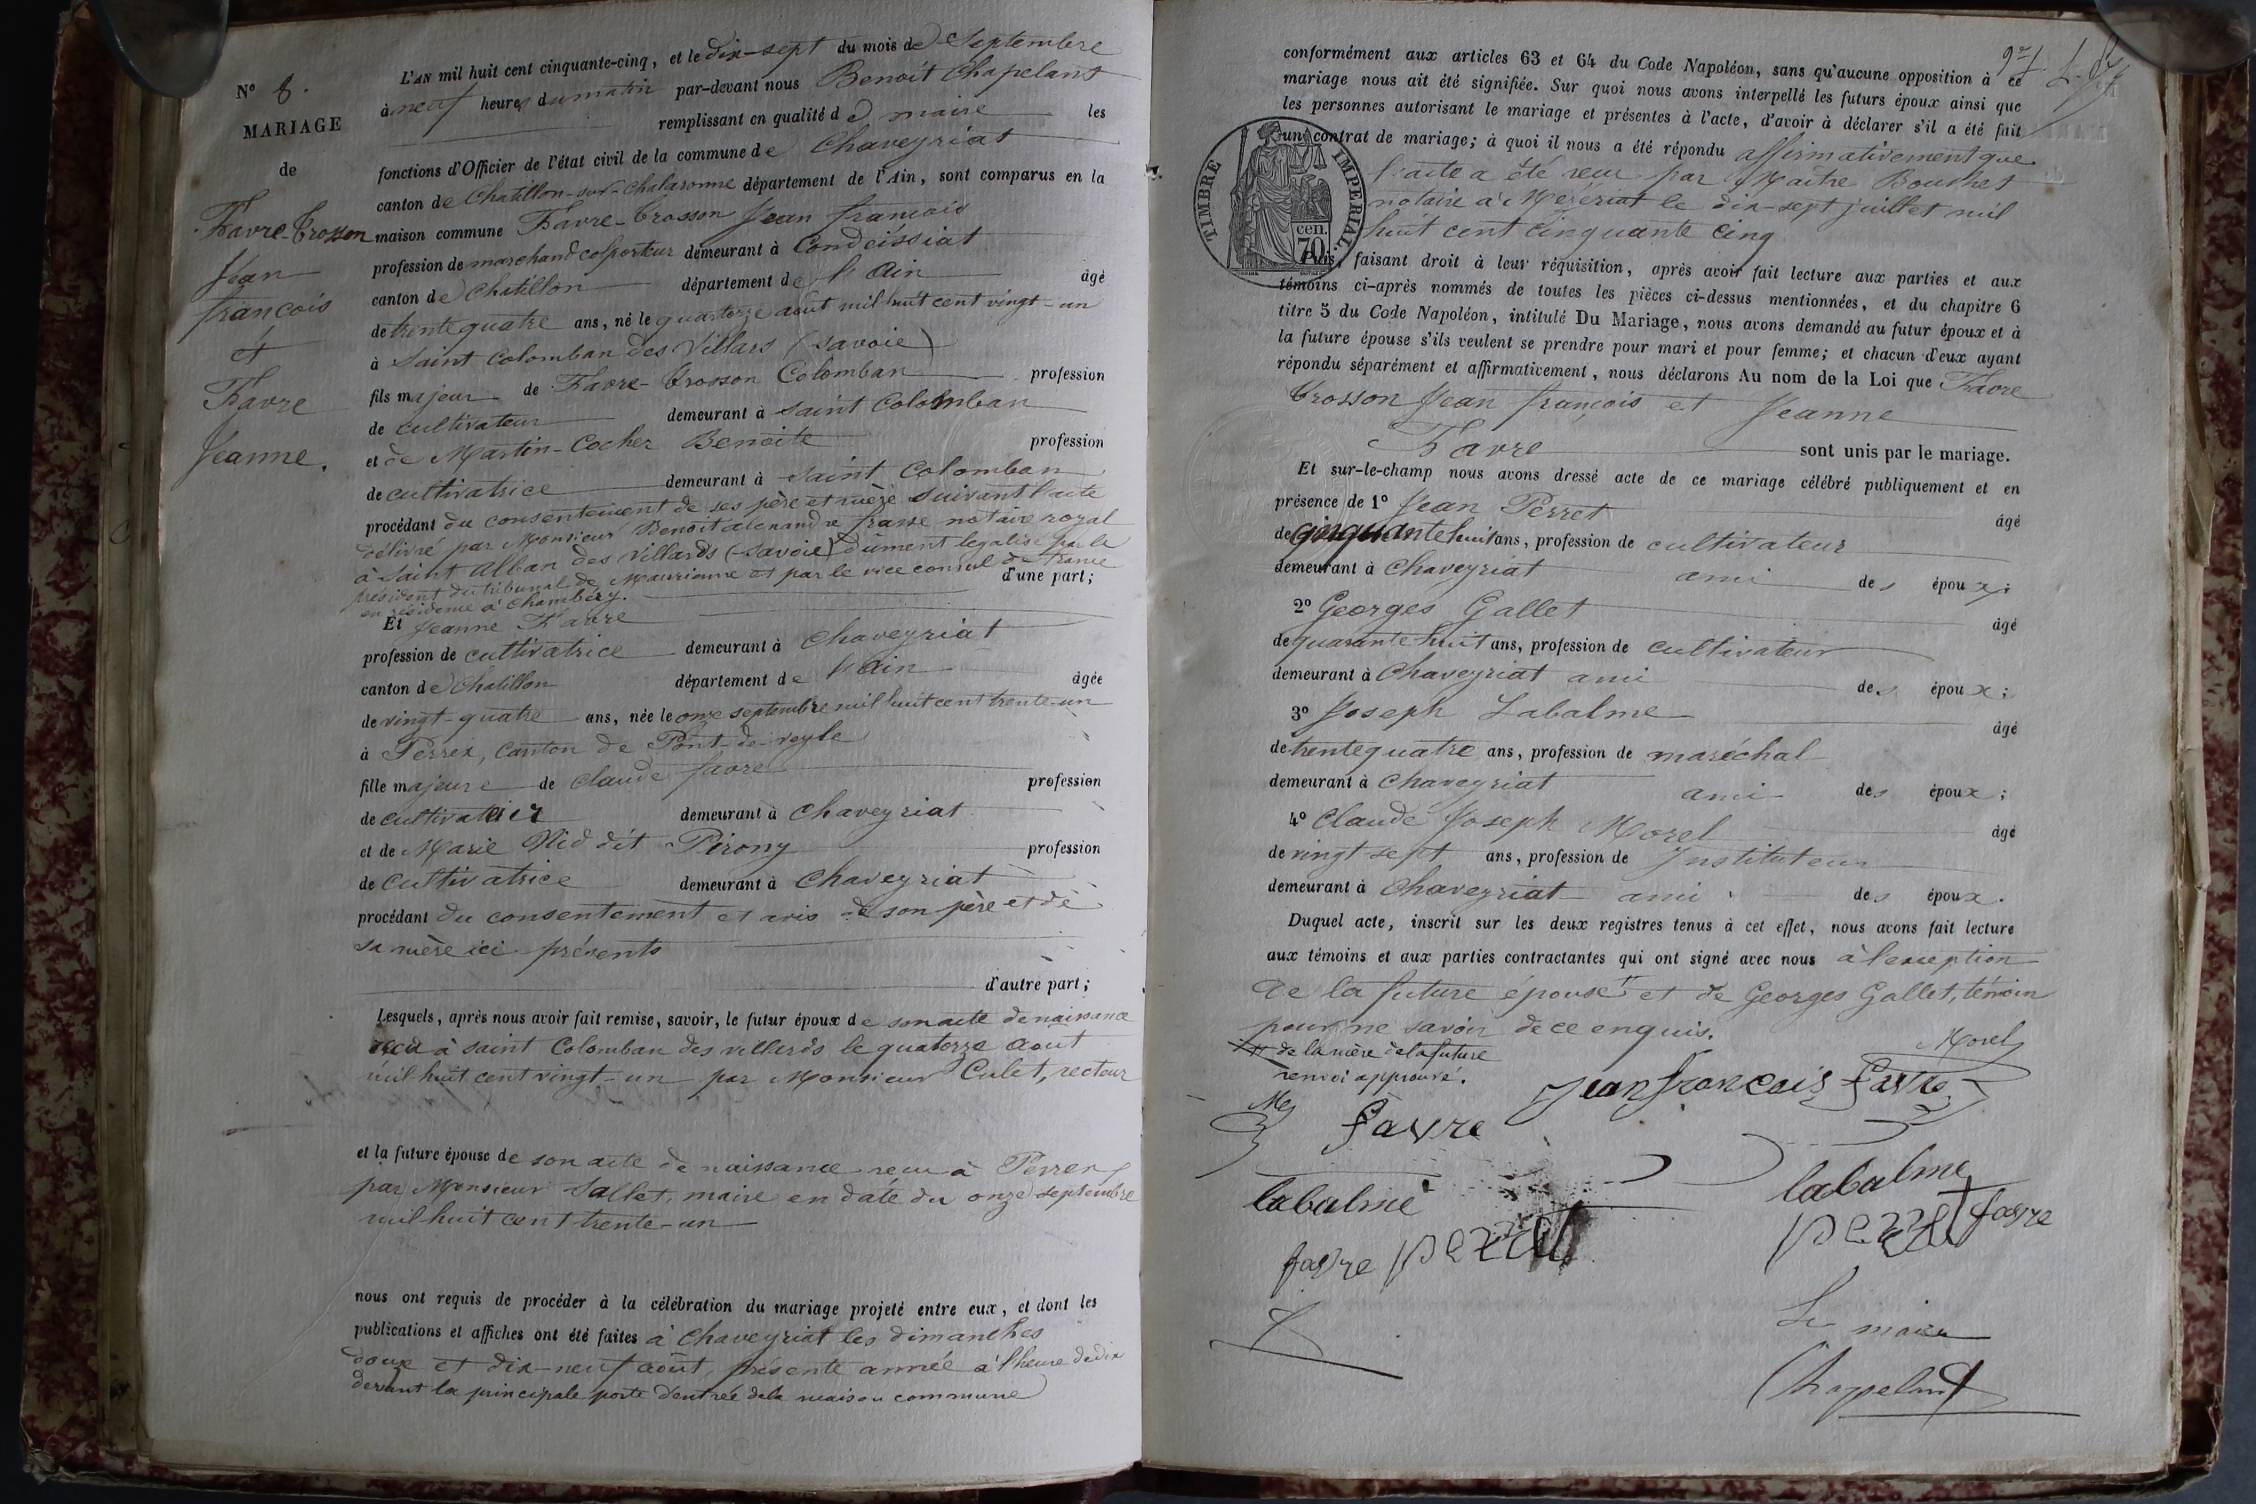 N° 8.
MARIAGE
de
Favre-Trosson
Jean
françois
et
Favre
Jeanne.
L'AN mil huit cent cinquante-cinq, et le dix-sept du mois de Septembre
à neuf heures du matin par-devant nous Benoit Chapelant
remplissant en qualité de maire les
fonctions d'Officier de l'état civil de la commune de Chaveyriat
canton de Chatillon-sur-Chalaronne département de l'Ain, sont comparus en la
maison commune Favre-Trosson Jean françois
profession de marchand colporteur demeurant à Condeissiat
canton de Chatillon département de l'Ain âgé
de trente quatre ans, né le quatorze août mil huit cent vingt-un
à Saint Colomban des Villars (Savoie)
fils majeur de Favre-Trosson Colomban profession
de cultivateur demeurant à Saint Colomban
et de Martin-Cocher Benoite profession
de cultivatrice demeurant à Saint Colomban
procédant du consentement de ses père et mère suivant l'acte
délivré par Monsieur Benoit alexandre frasse notaire royal
à Saint Alban des Villards (Savoie) dûment legalisé par le
président du tribunal de Maurienne et par le vice consul de France
en résidence à Chambéry. d'une part;
Et Jeanne Favre
profession de cultivatrice demeurant à Chaveyriat
canton de Chatillon département de l'ain âgée
de vingt-quatre ans, née le onze septembre mil huit cent trente-un
à Perrex, Canton de Pont-de-veyle
fille majeure de Claude favre profession
de cultivateur demeurant à Chaveyriat
et de Marie Nid dit Pirony profession
de Cultivatrice demeurant à Chaveyriat
procédant du consentement et avis de son père et de
sa mère ici présents
d'autre part;
Lesquels, après nous avoir fait remise, savoir, le futur époux de son acte de naissance
reçu à saint Colomban des villards le quatorze Août
mil huit cent vingt-un par Monsieur Culet, recteur
et la future épouse de son acte de naissance reçu à Perrex
par Monsieur Sallet, maire en date du onze septembre
mil huit cent trente-un
nous ont requis de procéder à la célébration du mariage projeté entre eux, et dont les
publications et affiches ont été faites à Chaveyriat les dimanches
douze et dix-neuf août, présente année à l'heure de dix
devant la principale porte d'entrée de la maison commune
conformément aux articles 63 et 64 du Code Napoléon, sans qu'aucune opposition à ce
mariage nous ait été signifiée. Sur quoi nous avons interpellé les futurs époux ainsi que
les personnes autorisant le mariage et présentes à l'acte, d'avoir à déclarer s'il a été fait
un contrat de mariage; à quoi il nous a été répondu affirmativement que
l'acte a été reçu par Maitre Bouchet
notaire à Mézériat le dix-sept juillet mil
huit cent cinquante cinq
TIMBRE IMPÉRIAL.
70 cen.
Puis, faisant droit à leur réquisition, après avoir fait lecture aux parties et aux
témoins ci-après nommés de toutes les pièces ci-dessus mentionnées, et du chapitre 6
titre 5 du Code Napoléon, intitulé Du Mariage, nous avons demandé au futur époux et à
la future épouse s'ils veulent se prendre pour mari et pour femme; et chacun d'eux ayant
répondu séparément et affirmativement, nous déclarons Au nom de la Loi que Favre
Trosson Jean françois et Jeanne
Favre sont unis par le mariage.
Et sur-le-champ nous avons dressé acte de ce mariage célébré publiquement et en
présence de 1° Jean Perret âgé
de cinquante huit ans, profession de cultivateur
demeurant à Chaveyriat ami des époux;
2° Georges Gallet âgé
de quarante huit ans, profession de cultivateur
demeurant à Chaveyriat ami des époux;
3° Joseph Labalme âgé
de trente quatre ans, profession de maréchal
demeurant à Chaveyriat ami des époux;
4° Claude Joseph Morel âgé
de vingt sept ans, profession de Instituteur
demeurant à Chaveyriat ami des époux.
Duquel acte, inscrit sur les deux registres tenus à cet effet, nous avons fait lecture
aux témoins et aux parties contractantes qui ont signé avec nous à l'exception
de la future épouse et de Georges Gallet, témoin
pour ne savoir de ce enquis.
de la mère de la future
renvoi approuvé.
Morel
Jean francois favre
favre
labalme
labalme
favre perret
perret favre
Le maire
Chapelant